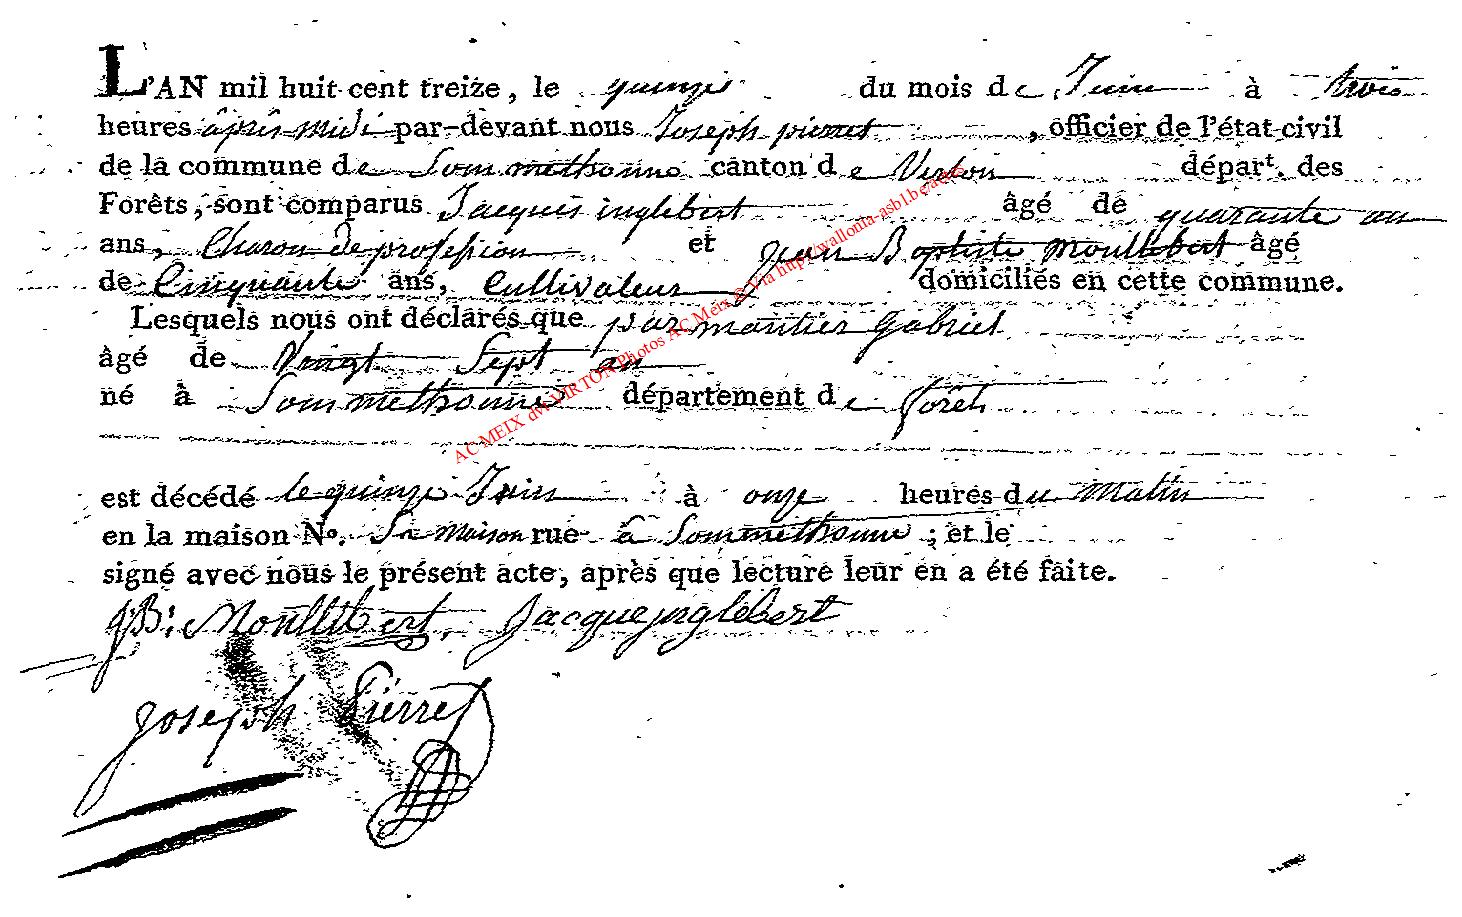 L'AN mil huit cent treize, le quinze du mois de Juin à trois
heures âpris midi par-devant nous Joseph pierret, officier de l'état civil
de la commune de Sommethonne canton de Virton départ. des
Forêts, sont comparus Jacques inglebert âgé de quarante an
ans, Charon de profession et Jean Baptiste moullebert âgé
de Cinquante ans, Cultivateur domiciliés en cette commune.
Lesquels nous ont déclarés que parmentier Gabriel
âgé de Vingt Sept an
né à Sommethonne département de forêts
est décédé le quinze Juin à onze heures du matin
en la maison No. Sa Maison rue à Sommethonne; et le
signé avec nous le présent acte, après que lecture leur en a été faite.
JB: Moullibert, Jacque jnglebert
Joseph Pierret
AC MEIX dvt VIRTON Photos AC Meix © Via http://wallonia-asbl.be/actes